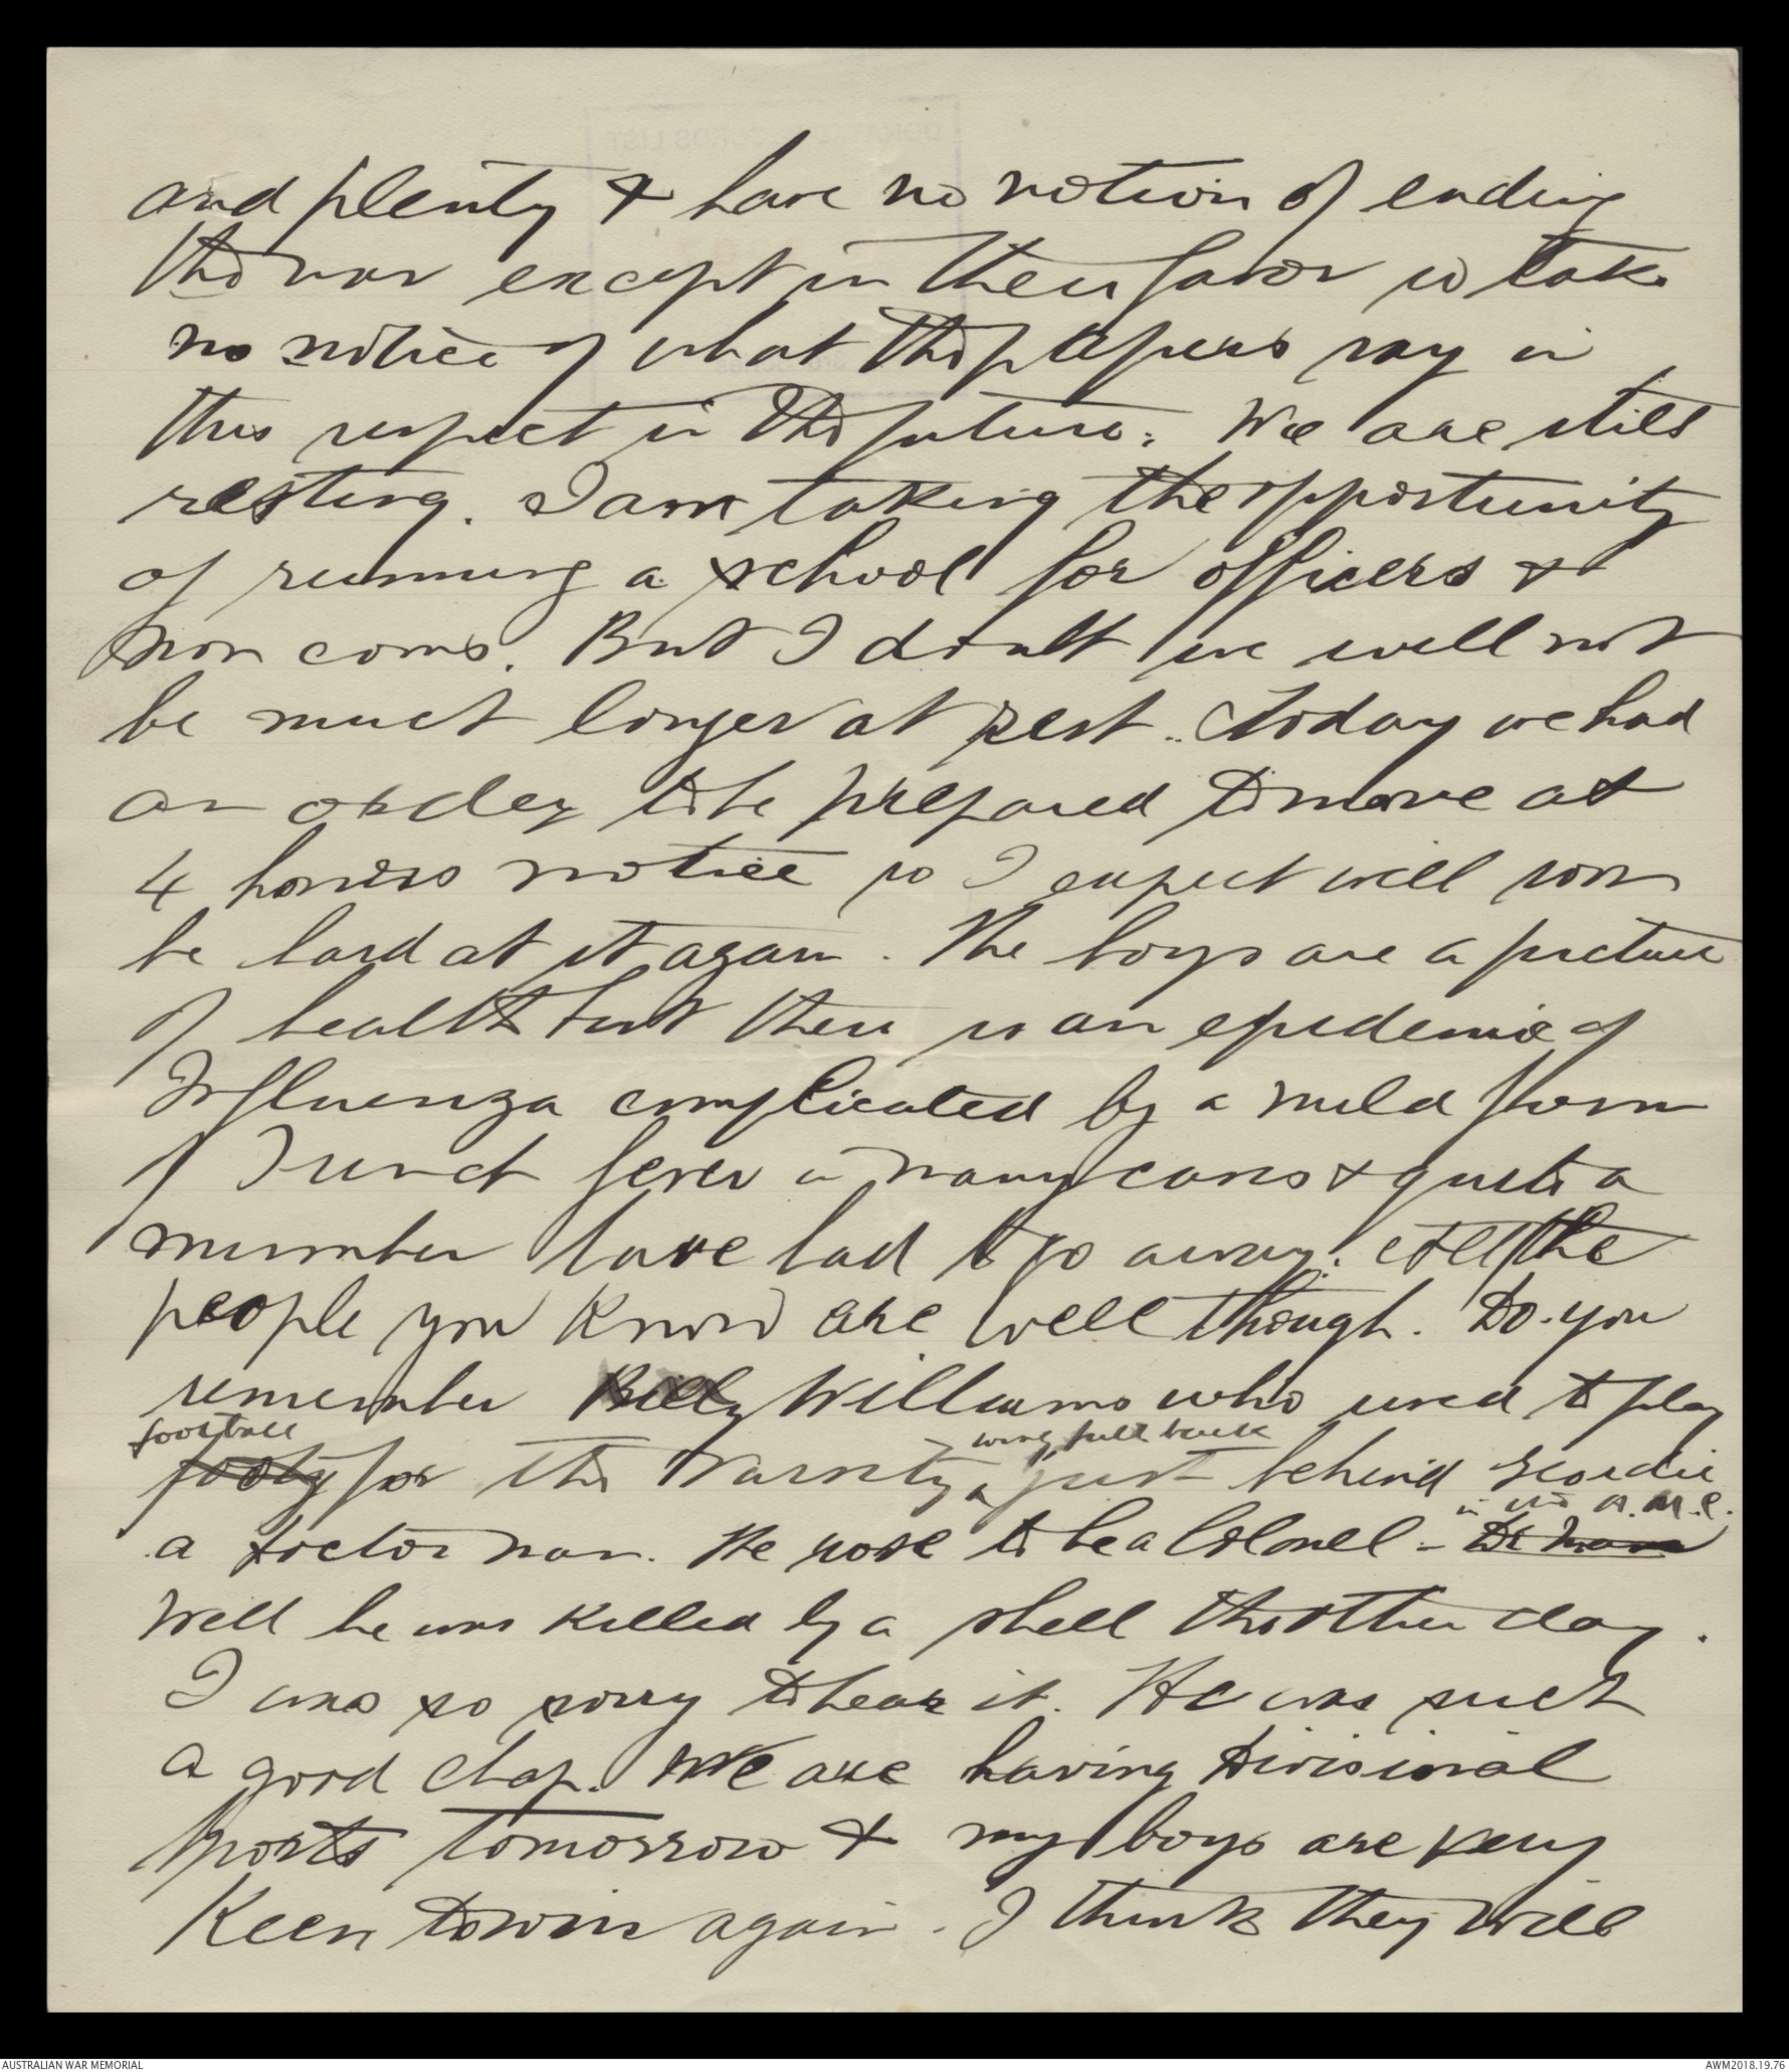 and plenty & have no notion of ending
the war except in their favor so take
no notice of what the papers say in
this respect in the future. We are still
resting. I am taking the opportunity
of running a school for officers &
non coms. But I doubt we will not
be much longer at rest. Today we had
an order to be prepared to move at
4 hours notice so I expect will soon
be hard at it again. The boys are a picture
of health but there is an epidemic of
Influenza complicated by a mild form
of Trench fever in many cases & quite a
number have had to go away. All the
people you know are well though. Do you
remember Billy Williams who used to play
football wing full back
footy for the Varsity, just behind Geordie
in the A.M.C.
a doctor man. He rose to be a Colonel - Dr man
Well he was killed by a shell the other day.
I was so sorry to hear it. He was such
a good chap. We are having Divisional
Sports tomorrow & my boys are very
Keen to win again. I think they will
AUSTRALIAN WAR MEMORIAL
AWM2018.19.76